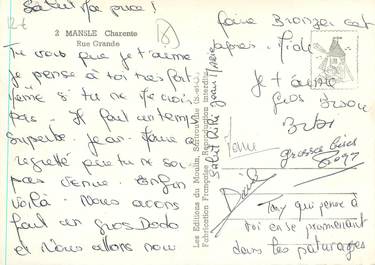 Salut ma puce !
2 MANSLE Charente
Rue Grande
Tu vois que je t'aime
je pense à toi très fort
même si tu ne le crois
pas. Il fait un temps
superbe. Jean-Marie a
regretté que tu ne sois
pas venue. Enfin
voilà. Nous avons
fait un gros Dodo
et nous allons nous
Les Editions du Moulin, Sartrouville (S.-et-O.)
Fabrication Française Reproduction interdite
faire Bronzer cet
après-midi
Je t'aime
Gros bisou
grosses bises
Tony qui pense à
toi en se promenant
dans les pâturages